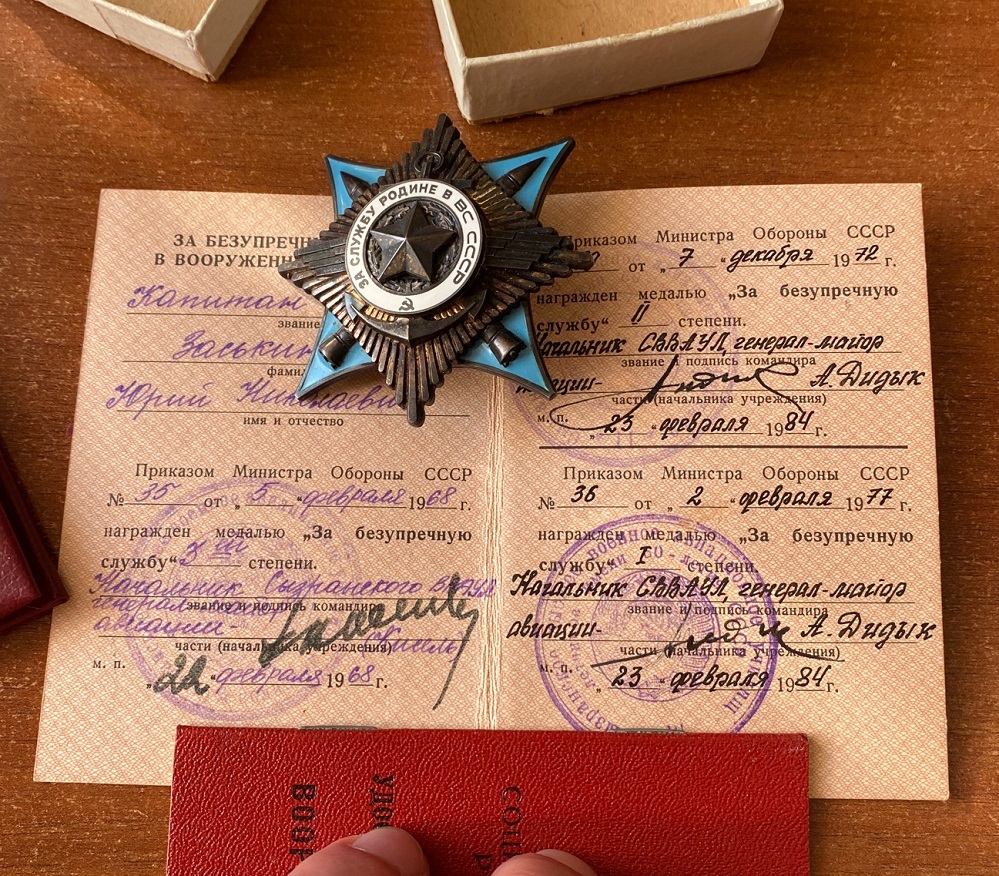 ЗА СЛУЖБУ РОДИНЕ В ВС СССР
ЗА БЕЗУПРЕЧН
В ВООРУЖЕНН
Капитан
звание
Заськин
фамил
Юрий Николаеви
имя и отчество
Приказом Министра Обороны СССР
№ 35 от „5 “ февраля 1968 г.
награжден медалью „За безупречную
службу“ 3ей степени.
Начальник Сызранского ВВАУЛ
генерал-майор
звание и подпись командира
авиации-
Кисель
части (начальника учреждения)
м. п.
„22 “ февраля 1968 г.
Приказом Министра Обороны СССР
от „7 “ декабря 1972 г.
награжден медалью „За безупречную
службу“ II степени.
Начальник СВВАУЛ, генерал-майор
звание и подпись командира
авиации- А. Дидык
части (начальника учреждения)
м. п.
„23 “ февраля 1984 г.
Приказом Министра Обороны СССР
№ 36 от „2 “ февраля 1977 г.
награжден медалью „За безупречную
службу“ I степени.
Начальник СВВАУЛ, генерал-майор
звание и подпись командира
авиации- А. Дидык
части (начальника учреждения)
м. п.
„23 “ февраля 1984 г.
УДОС
ВООР
СОЦИ
Р